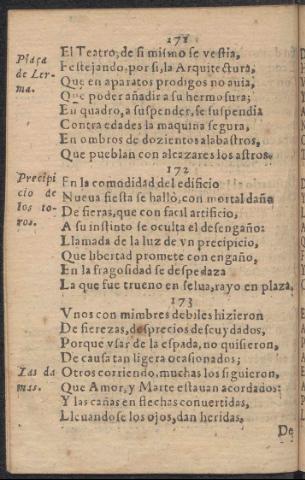 171
Plaça
de Ler-
ma.
El Teatro, de si mismo se vestia,
Festejando, por si, la Arquitectura,
Que en aparatos prodigos no auia,
Que poder añadir a su hermosura;
En quadro, a suspender, se suspendia
Contra edades la maquina segura,
En ombros de dozientos alabastros,
Que pueblan con alcazares los astros.
172
Precipi
cio de
los to-
ros.
En la comodidad del edificio
Nueva fiesta se hallò, con mortal daño
De fieras, que con facil artificio,
A su instinto se oculta el desengaño:
Llamada de la luz de vn precipicio,
Que libertad promete con engaño,
En la fragosidad se despedaza
La que fue trueno en selua, rayo en plaza.
173
Vnos con mimbres debiles hizieron
De fierezas, desprecios descuydados,
Porque vsar de la espada, no quisieron,
De causa tan ligera ocasionados;
Las da
mas.
Otros corriendo, muchas los siguieron,
Que Amor, y Marte estauan acordados:
Y las cañas en flechas conuertidas,
Lleuandose los ojos, dan heridas.
De